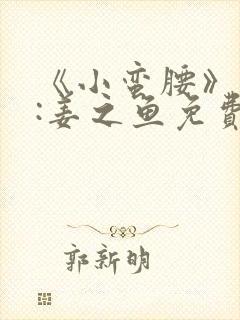 《小蛮腰》
:姜之鱼免费
郭新明